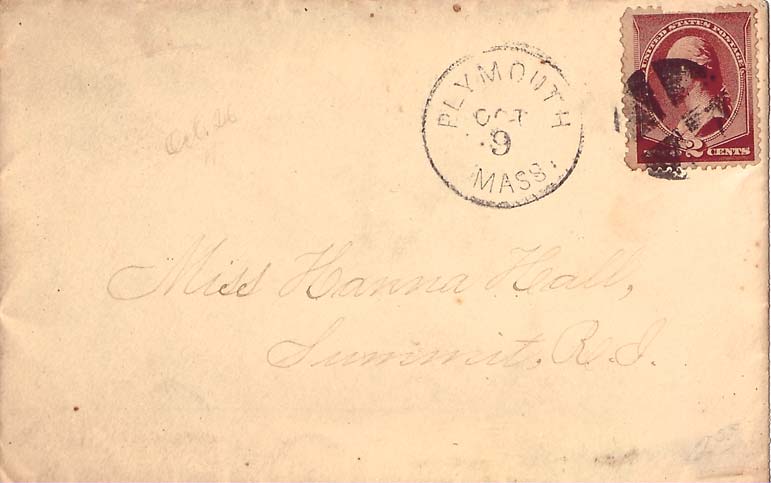 PLYMOUTH
OCT
9
MASS.
UNITED STATES POSTAGE
2 CENTS
Oct. 26
Miss Hanna Hall,
Summit, R.I.